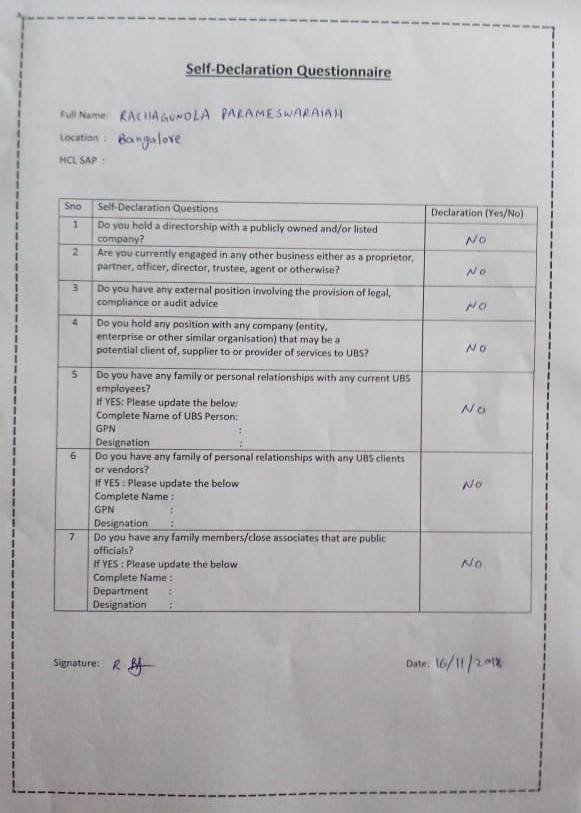 Self-Declaration Questionnaire
Full Name: RACHAGUNDLA PARAMESWARAIAH
Location : Bangalore
HCL SAP :
Sno Self-Declaration Questions Declaration (Yes/No)
1 Do you hold a directorship with a publicly owned and/or listed
company? NO
2 Are you currently engaged in any other business either as a proprietor,
partner, officer, director, trustee, agent or otherwise? NO
3 Do you have any external position involving the provision of legal,
compliance or audit advice NO
4 Do you hold any position with any company (entity,
enterprise or other similar organisation) that may be a
potential client of, supplier to or provider of services to UBS? NO
5 Do you have any family or personal relationships with any current UBS
employees?
If YES: Please update the below
Complete Name of UBS Person: NO
GPN :
Designation :
6 Do you have any family of personal relationships with any UBS clients
or vendors?
If YES : Please update the below NO
Complete Name :
GPN :
Designation :
7 Do you have any family members/close associates that are public
officials?
If YES : Please update the below NO
Complete Name :
Department :
Designation :
Signature: R Date: 16/11/2018